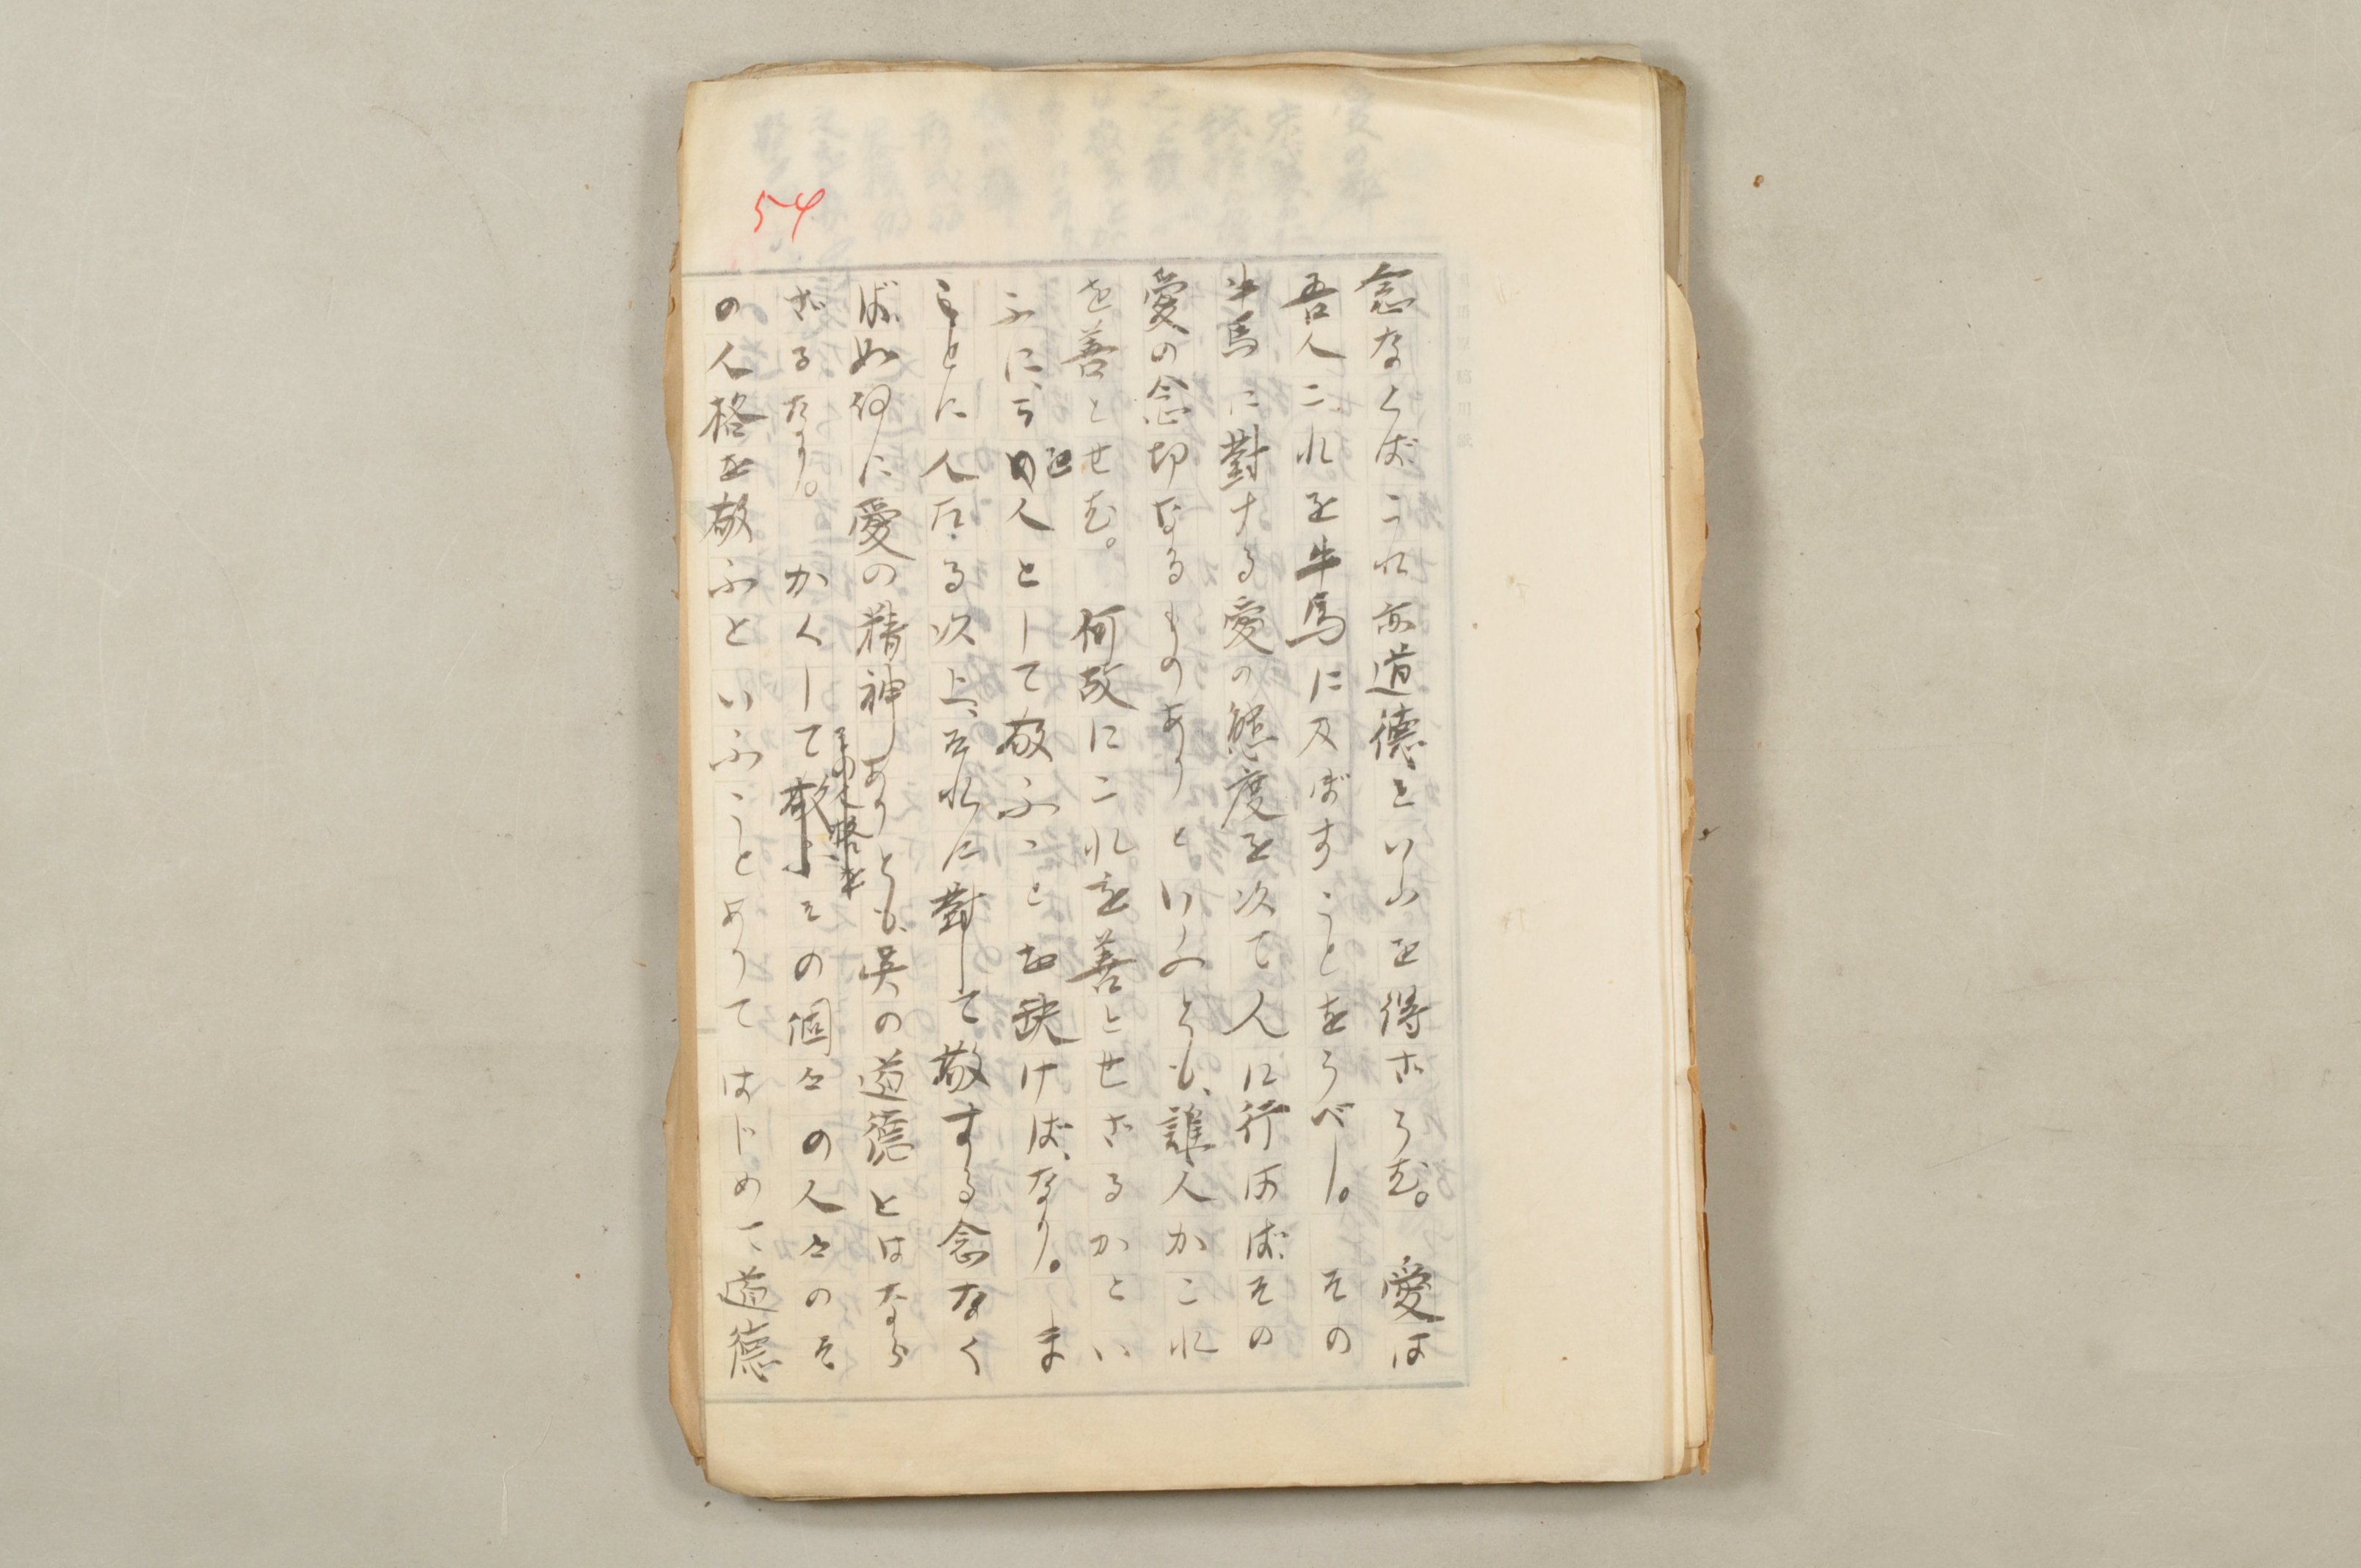 54
念なくばこれ亦道德といふを得ざらむ。愛は
吾人これを牛馬に及ぼすことをうべし。その
牛馬に對する愛の態度を以て人に行はばその
愛の念切なるものありといふとも、誰人かこれ
を善とせむ。何故にこれを善とせざるかとい
ふに、人として敬ふことを缺けばなり。ま
ことに人たる以上、それに對して敬する念なく
ば如何に愛の精神ありとも、眞の道德とはなら
ざるなり。かくして敬ふその個々の人々のそ
その人格を
の人格を敬ふといふことありてはじめて道德